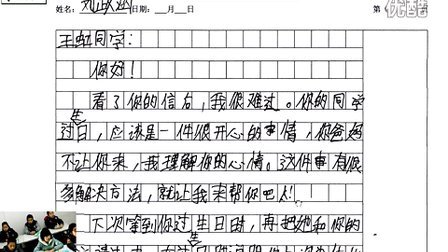 姓名: 日期:__月__日 第
优酷
王虹同学:
你好!
看了你的信后,我很难过。你的同学
过生日,应该是一件很开心的事情,你爸妈
不让你来,我理解你的心情。这件事有很
多解决方法,就让我来帮你吧!
下次等到你过生日时,再把她和你的